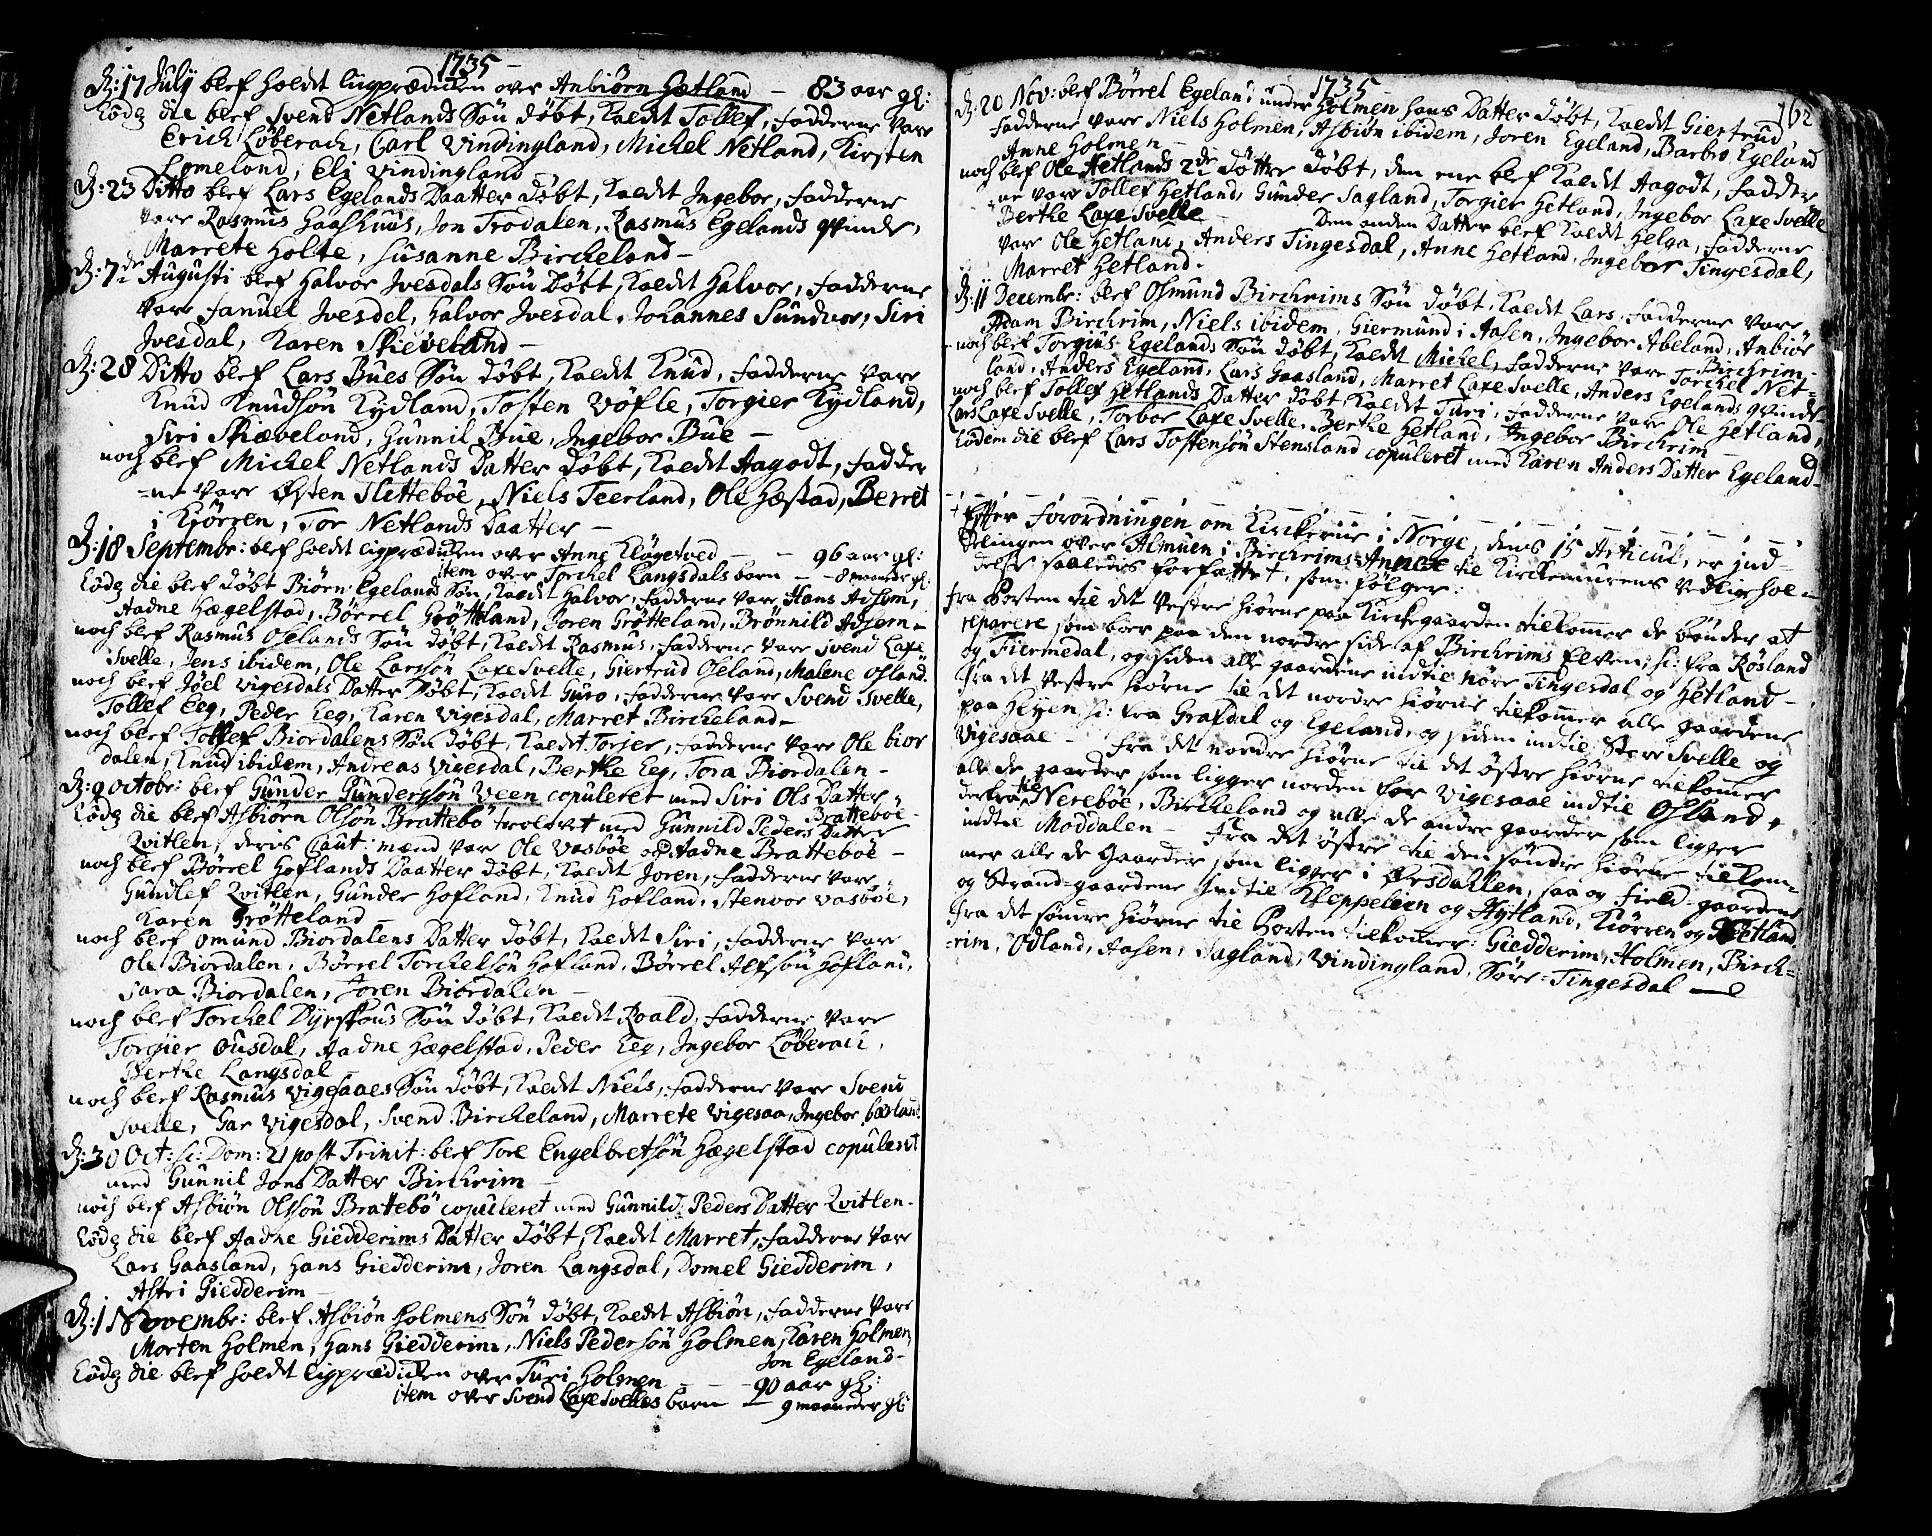 1735
D: 17 July blef holdt liigprædicken over Anbiørn Hetland — 83 aar gl:
Eodẽ die blef Svend Netlands Søn døbt, kaldt Tollef, fadderne vare
Erich Løberach, Carl Vindingland, Michel Netland, Kirsten
Lomeland, Eli Vindingland
D: 23 Ditto blef Lars Egelands Daatter døbt, kaldt Ingebor, fadderne
vare Rasmus Gaashuus, Jon Trodalen, Rasmus Egelands qvinde,
Marrete Holte, Susanne Bircheland —
D: 7de Augusti blef Halvor Ivesdals Søn døbt, kaldt Halvor, fadderne
vare Samuel Ivesdel, Halvor Ivesdal, Johannes Sundvor, Siri
Ivesdal, Karen Skieveland —
D: 28 Ditto blef Lars Bues Søn døbt, kaldt Knud, fadderne vare
Knud Knudsøn Kydland, Tosten Vøfle, Torgier Kydland,
Siri Skiæveland, Gunnil Bue, Ingebor Bue —
noch blef Michel Netlands Datter døbt, kaldt Aagodt, fadder
-ne vare Østen Slettebøe, Niels Teerland, Ole Hæstad, Berret
i Kiørren, Tor Netlands Daatter —
D: 18 Septembr: blef holdt ligprædicken over Anne Kløgetved — — 96 aar gl:
item over Torchel Langsdals barn — — 8 maaneder gl:
Eodẽ die blef døbt Biørn Egelands Søn, kaldt Halvor, fadderne vare Hans
Aadne Hægelstad, Børrel Grøtteland, Joren Grøtteland, Brønnild —
noch blef Rasmus Oselands Søn døbt, kaldt Rasmus, fadderne vare Svend Laxe
Svelle, Jens ibidem, Ole Larssøn Laxe Svelle, Giertrud Oseland, Malene Osland
noch blef Joel Vigesdals Datter døbt, kaldt Guro, fadderne vare Svend Svelle,
Tollef Eeg, Peder Eeg, Karen Vigesdal, Marret Bircheland —
noch blef Tollef Biordalens Søn døbt, kaldt Torjer, fadderne vare Ole bior
dalen, Knud ibidem, Andreas Vigesdal, Berthe Eeg, Tora Biordalen —
D: 9 octobr: blef Gunder Gundersøn Veen copuleret med Siri Ols Datter
Brattebøe —
Eodẽ die blef Asbiørn Olsøn Brattebø trolovet med Gunnild Peders Datter
Qvitlen, deris Caut: mænd vare Ole Vasbøe og Aadne Brattebøe —
noch blef Børrel Hoflands Daatter døbt, kaldt Joren, fadderne vare
Gundlef Qvitlen, Gunder Hofland, Knud Hofland, Stenvor Vasbøe,
Karen Grøtteland —
noch blef Omund Biordalens Datter døbt, kaldt Siri, fadderne vare
Ole Biordalen, Børrel Torchelsøn Hofland, Børrel Alfsøn Hofland,
Sara Biordalen, Joren Biordalen —
noch blef Torchel Dyrskous Søn døbt, kaldt Roald, fadderne vare
Torgier Ousdal, Aadne Hægelstad, Peder Eeg, Ingebor Løberach,
Berthe Langsdal —
noch blef Rasmus Vigesaaes Søn døbt, kaldt Niels, fadderne vare Svend
Svelle, Gar Vigesdal, Svend Bircheland, Marrete Vigesaa, Ingebor
D: 30 Oct: Dom: 21 post Trinit: blef Tore Engelbretsøn Hægelstad copuleret
med Gunnil Jons Datter Birchrim —
noch blef Asbiøn Olssøn Brattebø copuleret med Gunnild Peders Datter Qvitlen —
Eodẽ die blef Aadne Giedderims Datter døbt, kaldt Marret, fadderne vare
Lars Gaasland, Hans Giedderim, Joren Langsdal, Domel Giedderim,
Astri Giedderim —
D: 1 Novembr: blef Asbiøn Holmens Søn døbt, kaldt Asbiøn, fadderne vare
Morten Holmen, Hans Giedderim, Niels Pedersøn Holmen, Karen Holmen,
Jon Egeland —
Eodẽ die blef holdt ligprædicken over Turi Holmen — — 90 aar gl:
item over Svend Laxe Svelles barn — 9 maaneder gl:
1735
162
D: 20 Nov: blef Børrel Egeland under Holmen hans Datter døbt, kaldt Giertrud,
fadderne vare Niels Holmen, Asbiøn ibidem, Joren Egeland, Barbro Egeland
Anne Holmen —
noch blef Ole Hetlands 2de døttre døbt, den ene blef kaldt Aagodt, fadder
-ne vare Tollef Hetland, Gunder Sagland, Torgier Hetland, Ingebor Laxe Svelle
Berthe Laxe Svelle — Den anden Datter blef kaldt Helga, fadderne
vare Ole Hetland, Anders Tingesdal, Anne Hetland, Ingebor Tingesdal,
Marret Hetland.
D: 11 Decembr: blef Osmund Birchrims Søn døbt, kaldt Lars, fadderne vare
Adam Birchrim, Niels ibidem, Giermund i Aasen, Ingebor Abeland, Anbiør
Birchrim —
noch blef Torgius Egelands Søn døbt, kaldt Michel, fadderne vare Torchel Net-
land, Anders Egeland, Lars Gaasland, Marret Laxe Svelle, Anders Egelands qvinde —
noch blef Tollef Hetlands Datter døbt, kaldt Turi, fadderne vare Ole Hetland,
Lars Laxe Svelle, Torbor Laxe Svelle, Berthe Hetland, Ingebor Birchrim —
Eodem die blef Lars Tostensøn Stensland copuleret med Karen Anders Datter Egeland —
Efter Forordningen om Kirckerne i Norge, dens 15 Articul, er ind-
delingen over Almuen i Birchrims Annex til Kirckemurens vedligehol-
delse saaledis forfattet, som følger:
fra Porten til det vestre hiørne paa Kirckegaarden tilkomer de bønder at
reparere som boer paa den nordre side af Birchrims Elven, fra Røsland
og Fiermedal, og siden alle gaardene indtil nore Tingesdal og Hetland —
Fra det vestre hiørne til det nordre hiørne tilkomer alle gaardene
paa Heyen, fra Grafdal og Egeland, og siden indtil Store Svelle og
Vigesaae — Fra det nordre hiørne til det østre hiørne tilkomer
alle de gaarder som ligger norden for Vigesaae indtil Osland,
derfra til Nerebøe, Bircheland og alle de andre gaarder som ligger
indtil Moddalen — Fra det østre til den søndre hiørne tilkom-
mer alle de gaarder som ligger i Ørsdahlen, saa og Field-gaardene
og Strand-gaardene indtil Kleppelien og Hytland, Kiørren og Netland.
Fra det søndre hiørne til Porten tilkomer: Giedderim, Holmen, Birch-
rim, Odland, Aasen, Sagland, Vindingland, Søre-Tingesdal —